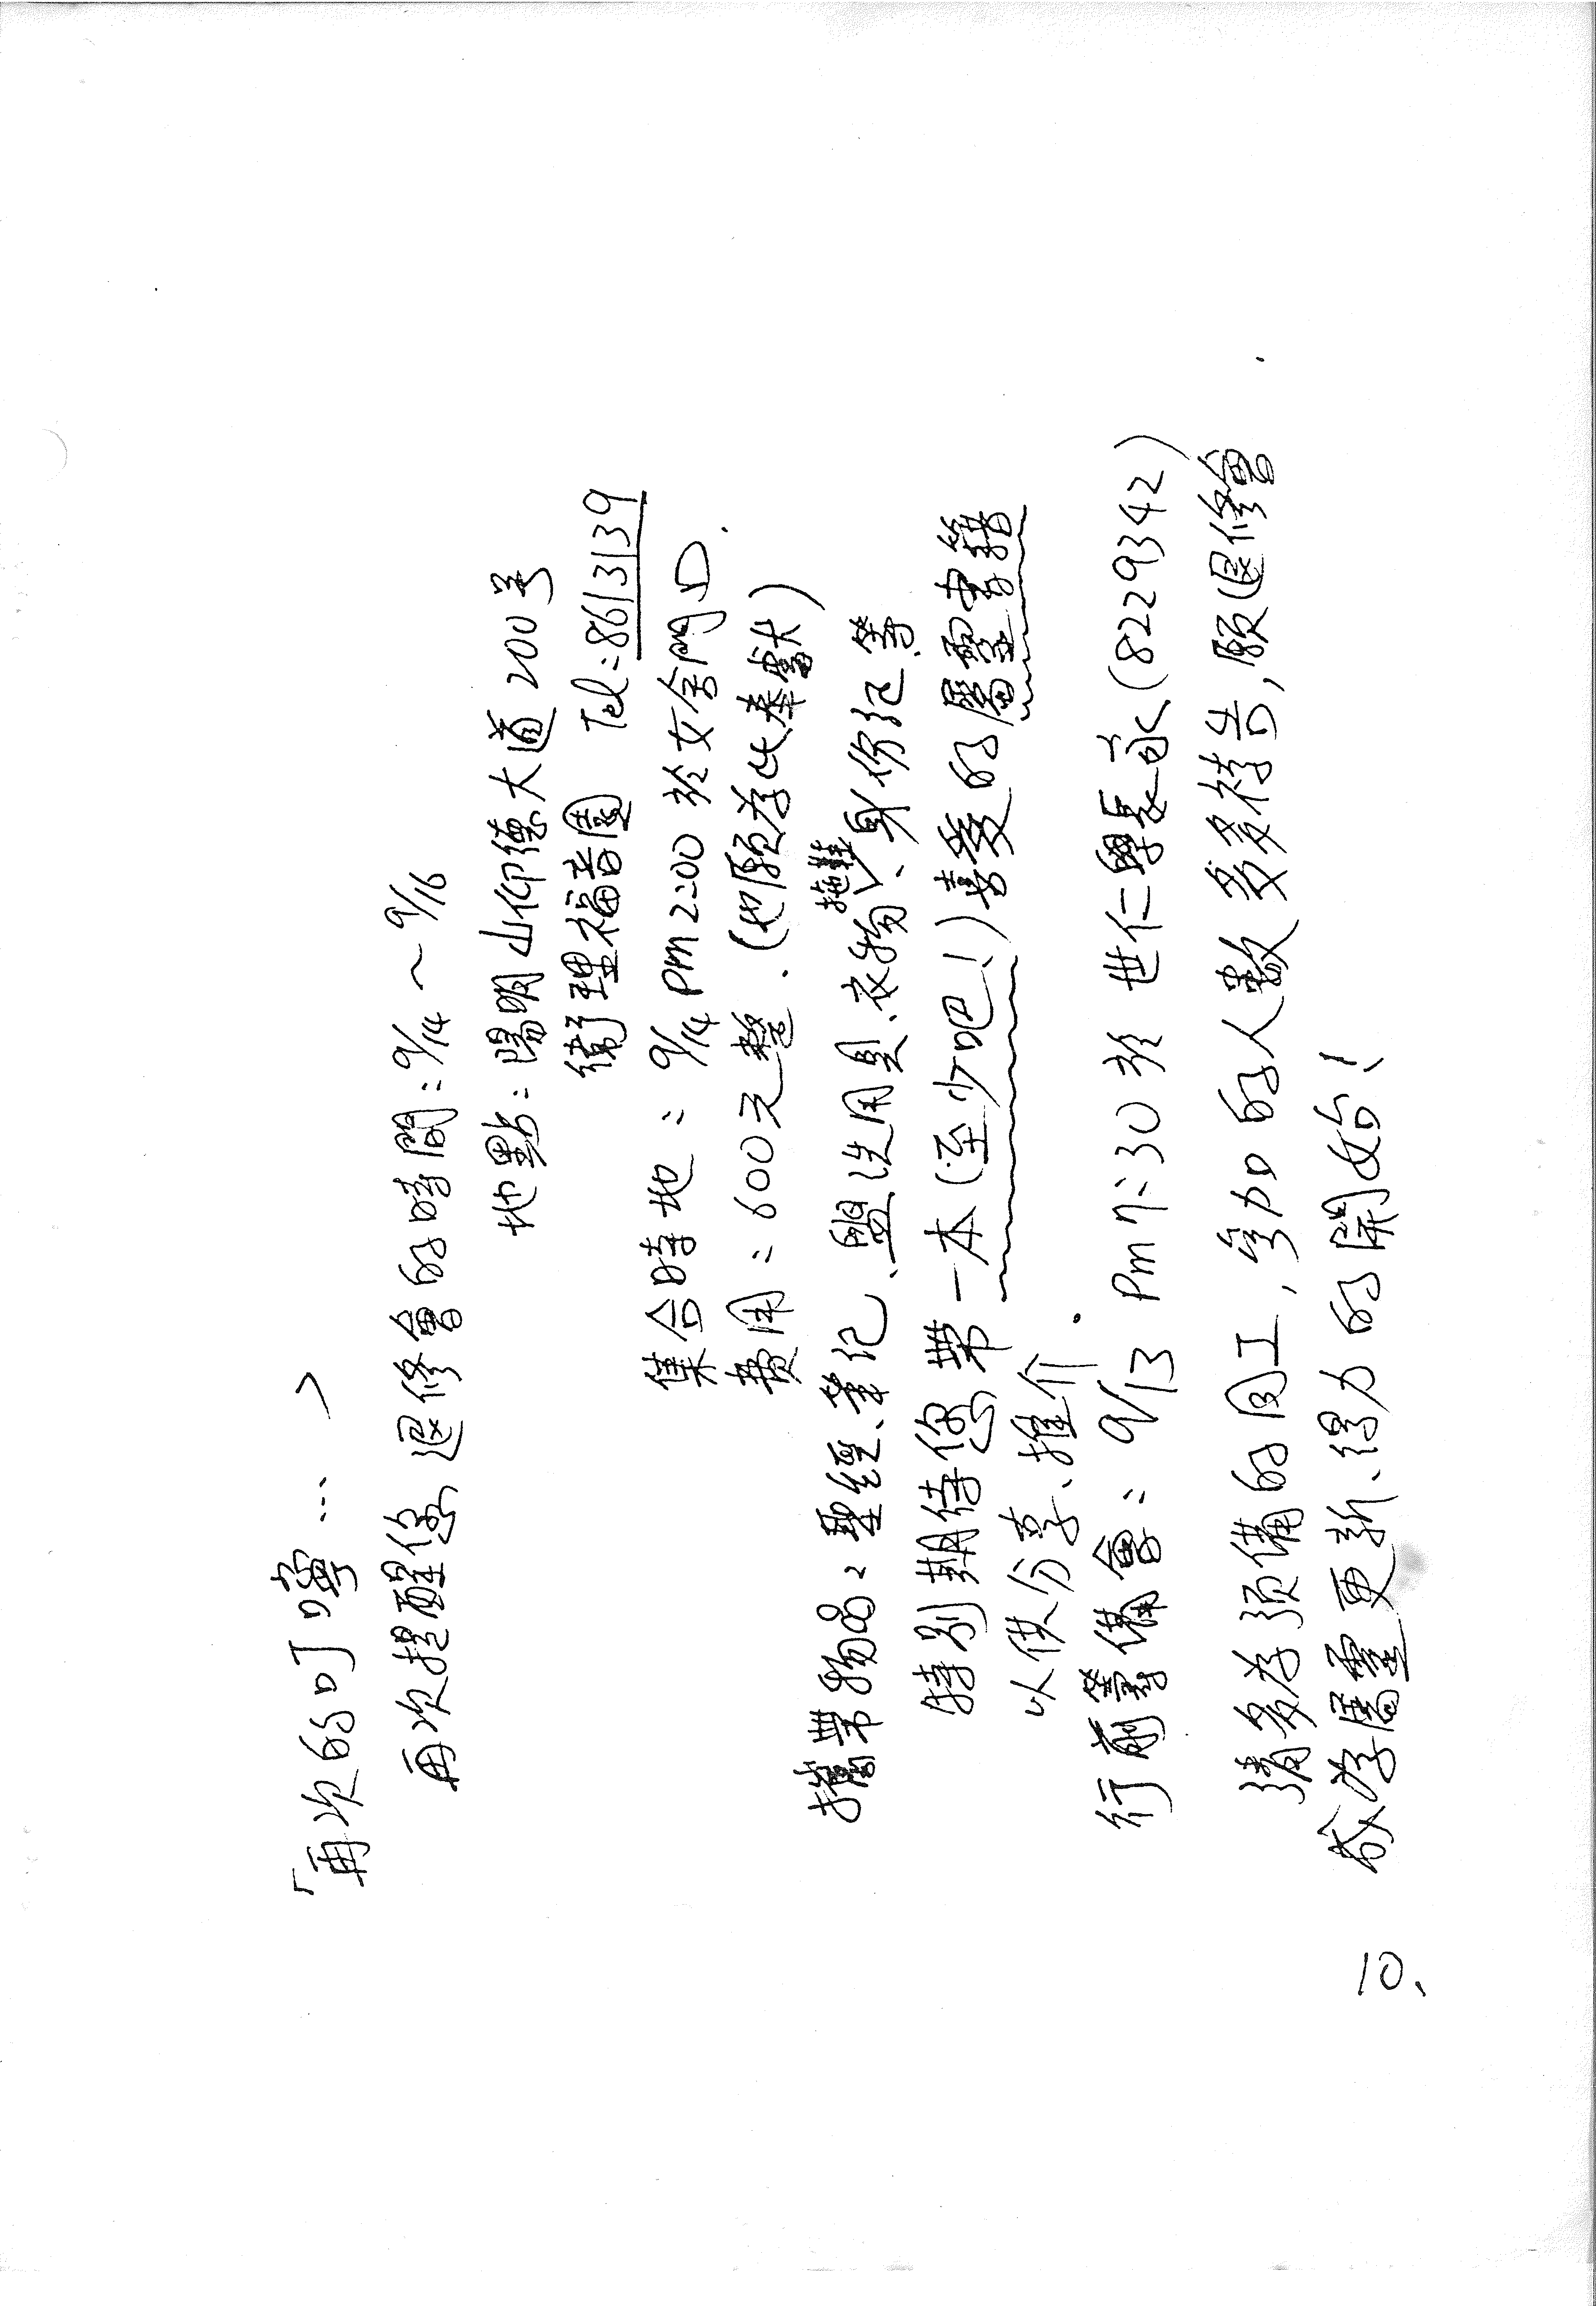 「再次的叮嚀…>
再次提醒您,退修會的時間:9/14~9/16
地點:陽明山仰德大道200号
衛理福音園 Tel:8613139
集合時地:9/14 Pm2:00 於女舍門口.
費用:600元整.(也願为此奉獻)
攜帶物品:聖經、筆記、盥洗用具、衣物、拖鞋、身份証等
特別期待您帶一本(至少吧!)喜愛的屬靈書籍
以供分享、推介.
行前籌備會:9/13 Pm7:30 於 世仁學長家(8229342)
請多为預備的同工,參加的人數多多禱告,願退修會
成为屬靈更新、得力的開始!
10、